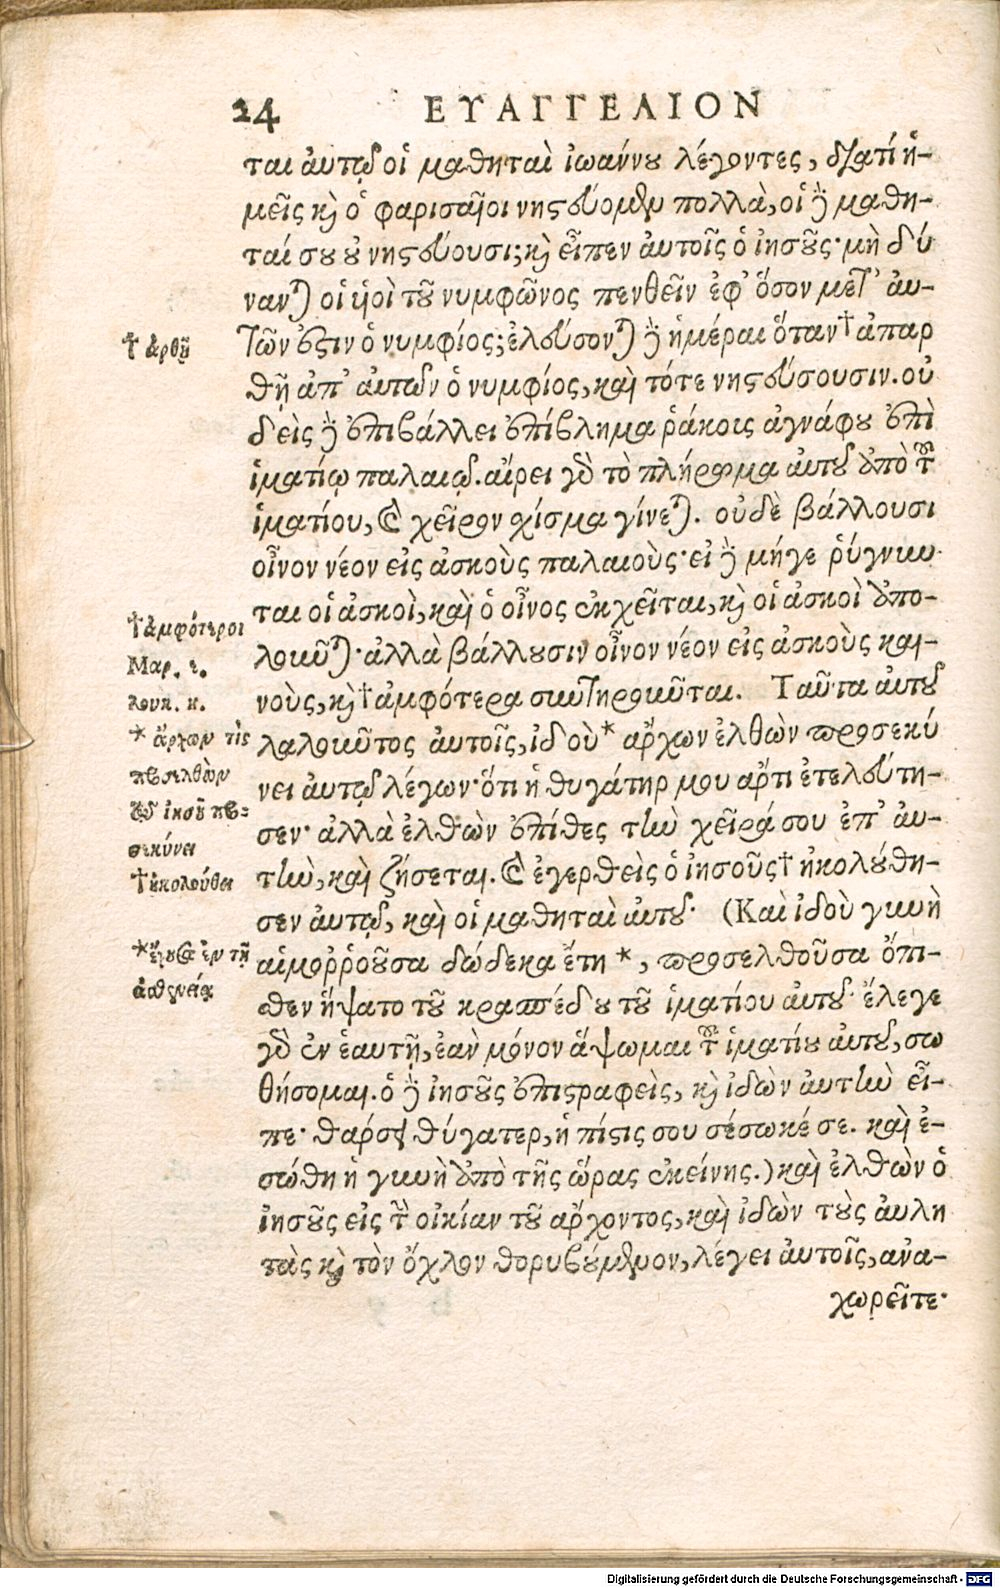 24 ΕΥΑΓΓΕΛΙΟΝ
ται αὐτῷ οἱ μαθηταὶ ἰωάννου λέγοντες, διατί ἡ-
μεῖς καὶ ὁι φαρισαῖοι νηστεύομεν πολλὰ, οἱ δὲ μαθη-
ταί σου οὐ νηστεύουσι; καὶ εἶπεν αὐτοῖς ὁ ἰησοῦς· μὴ δύ
νανται οἱ υἱοὶ τοῦ νυμφῶνος πενθεῖν ἐφ' ὅσον μετ' αυ-
τῶν ἐστιν ὁ νυμφίος; ἐλεύσονται δὲ ἡμέραι ὅταν † ἀπαρ
θῇ ἀπ' αὐτῶν ὁ νυμφίος, καὶ τότε νηστεύσουσιν. οὐ
δεὶς δὲ ἐπιβάλλει ἐπίβλημα ῥάκοις ἀγνάφου ἐπὶ
ἱματίῳ παλαιῷ. αἴρει γὰρ τὸ πλήρωμα αὐτοῦ ἀπὸ τοῦ
ἱματίου, καὶ χεῖρον σχίσμα γίνεται. οὐδὲ βάλλουσι
οἶνον νέον εἰς ἀσκοὺς παλαιοὺς· εἰ δὲ μήγε ῥύγνυν-
ται οἱ ἀσκοὶ, καὶ ὁ οἶνος ἐκχεῖται, καὶ οἱ ἀσκοὶ ἀπο-
λοῦνται· ἀλλὰ βάλλουσιν οἶνον νέον εἰς ἀσκοὺς και-
νοὺς, καὶ † ἀμφότερα συντηροῦνται. Ταῦτα αὐτοῦ
λαλοῦντος αὐτοῖς, ἰδοὺ * ἄρχων ἐλθὼν προσεκύ
νει αὐτῷ λέγων· ὅτι ἡ θυγάτηρ μου ἄρτι ἐτελεύτη-
σεν· ἀλλὰ ἐλθὼν ἐπίθες τὴν χεῖρά σου ἐπ' αὐ-
τὴν, καὶ ζήσεται. καὶ ἐγερθεὶς ὁ ἰησοῦς † ἠκολούθη-
σεν αὐτῷ, καὶ οἱ μαθηταὶ αὐτοῦ· (Καὶ ἰδοὺ γυνὴ
αἱμορῤῥοοῦσα δώδεκα ἔτη *, προσελθοῦσα ὄπι-
θεν ἥψατο τοῦ κρασπέδου τοῦ ἱματίου αὐτοῦ· ἔλεγε
γὰρ ἐν ἑαυτῇ, ἐὰν μόνον ἅψωμαι τοῦ ἱματίου αὐτοῦ, σω
θήσομαι. ὁ δὲ ἰησοῦς ἐπιστραφεὶς, καὶ ἰδὼν αὐτὴν εἶ-
πε· θάρσει θύγατερ, ἡ πίστις σου σέσωκέ σε. καὶ ἐ-
σώθη ἡ γυνὴ ἀπὸ τῆς ὥρας ἐκείνης.) καὶ ἐλθὼν ὁ
ἰησοῦς εἰς τὴν οἰκίαν τοῦ ἄρχοντος, καὶ ἰδὼν τοὺς αὐλη
τὰς καὶ τὸν ὄχλον θορυβούμενον, λέγει αὐτοῖς, ἀνα-
χωρεῖτε·
† ἀρθῇ
† ἀμφότεροι
Μαρ. ε.
λουκ. κ.
* ἄρχων τὶς
προσελθὼν
τῷ ἰησοῦ προ-
σεκύνει
† ἠκολούθει
* ἔχουσα ἐν τῇ
ἀσθενείᾳ
Digitalisierung gefördert durch die Deutsche Forschungsgemeinschaft - DFG